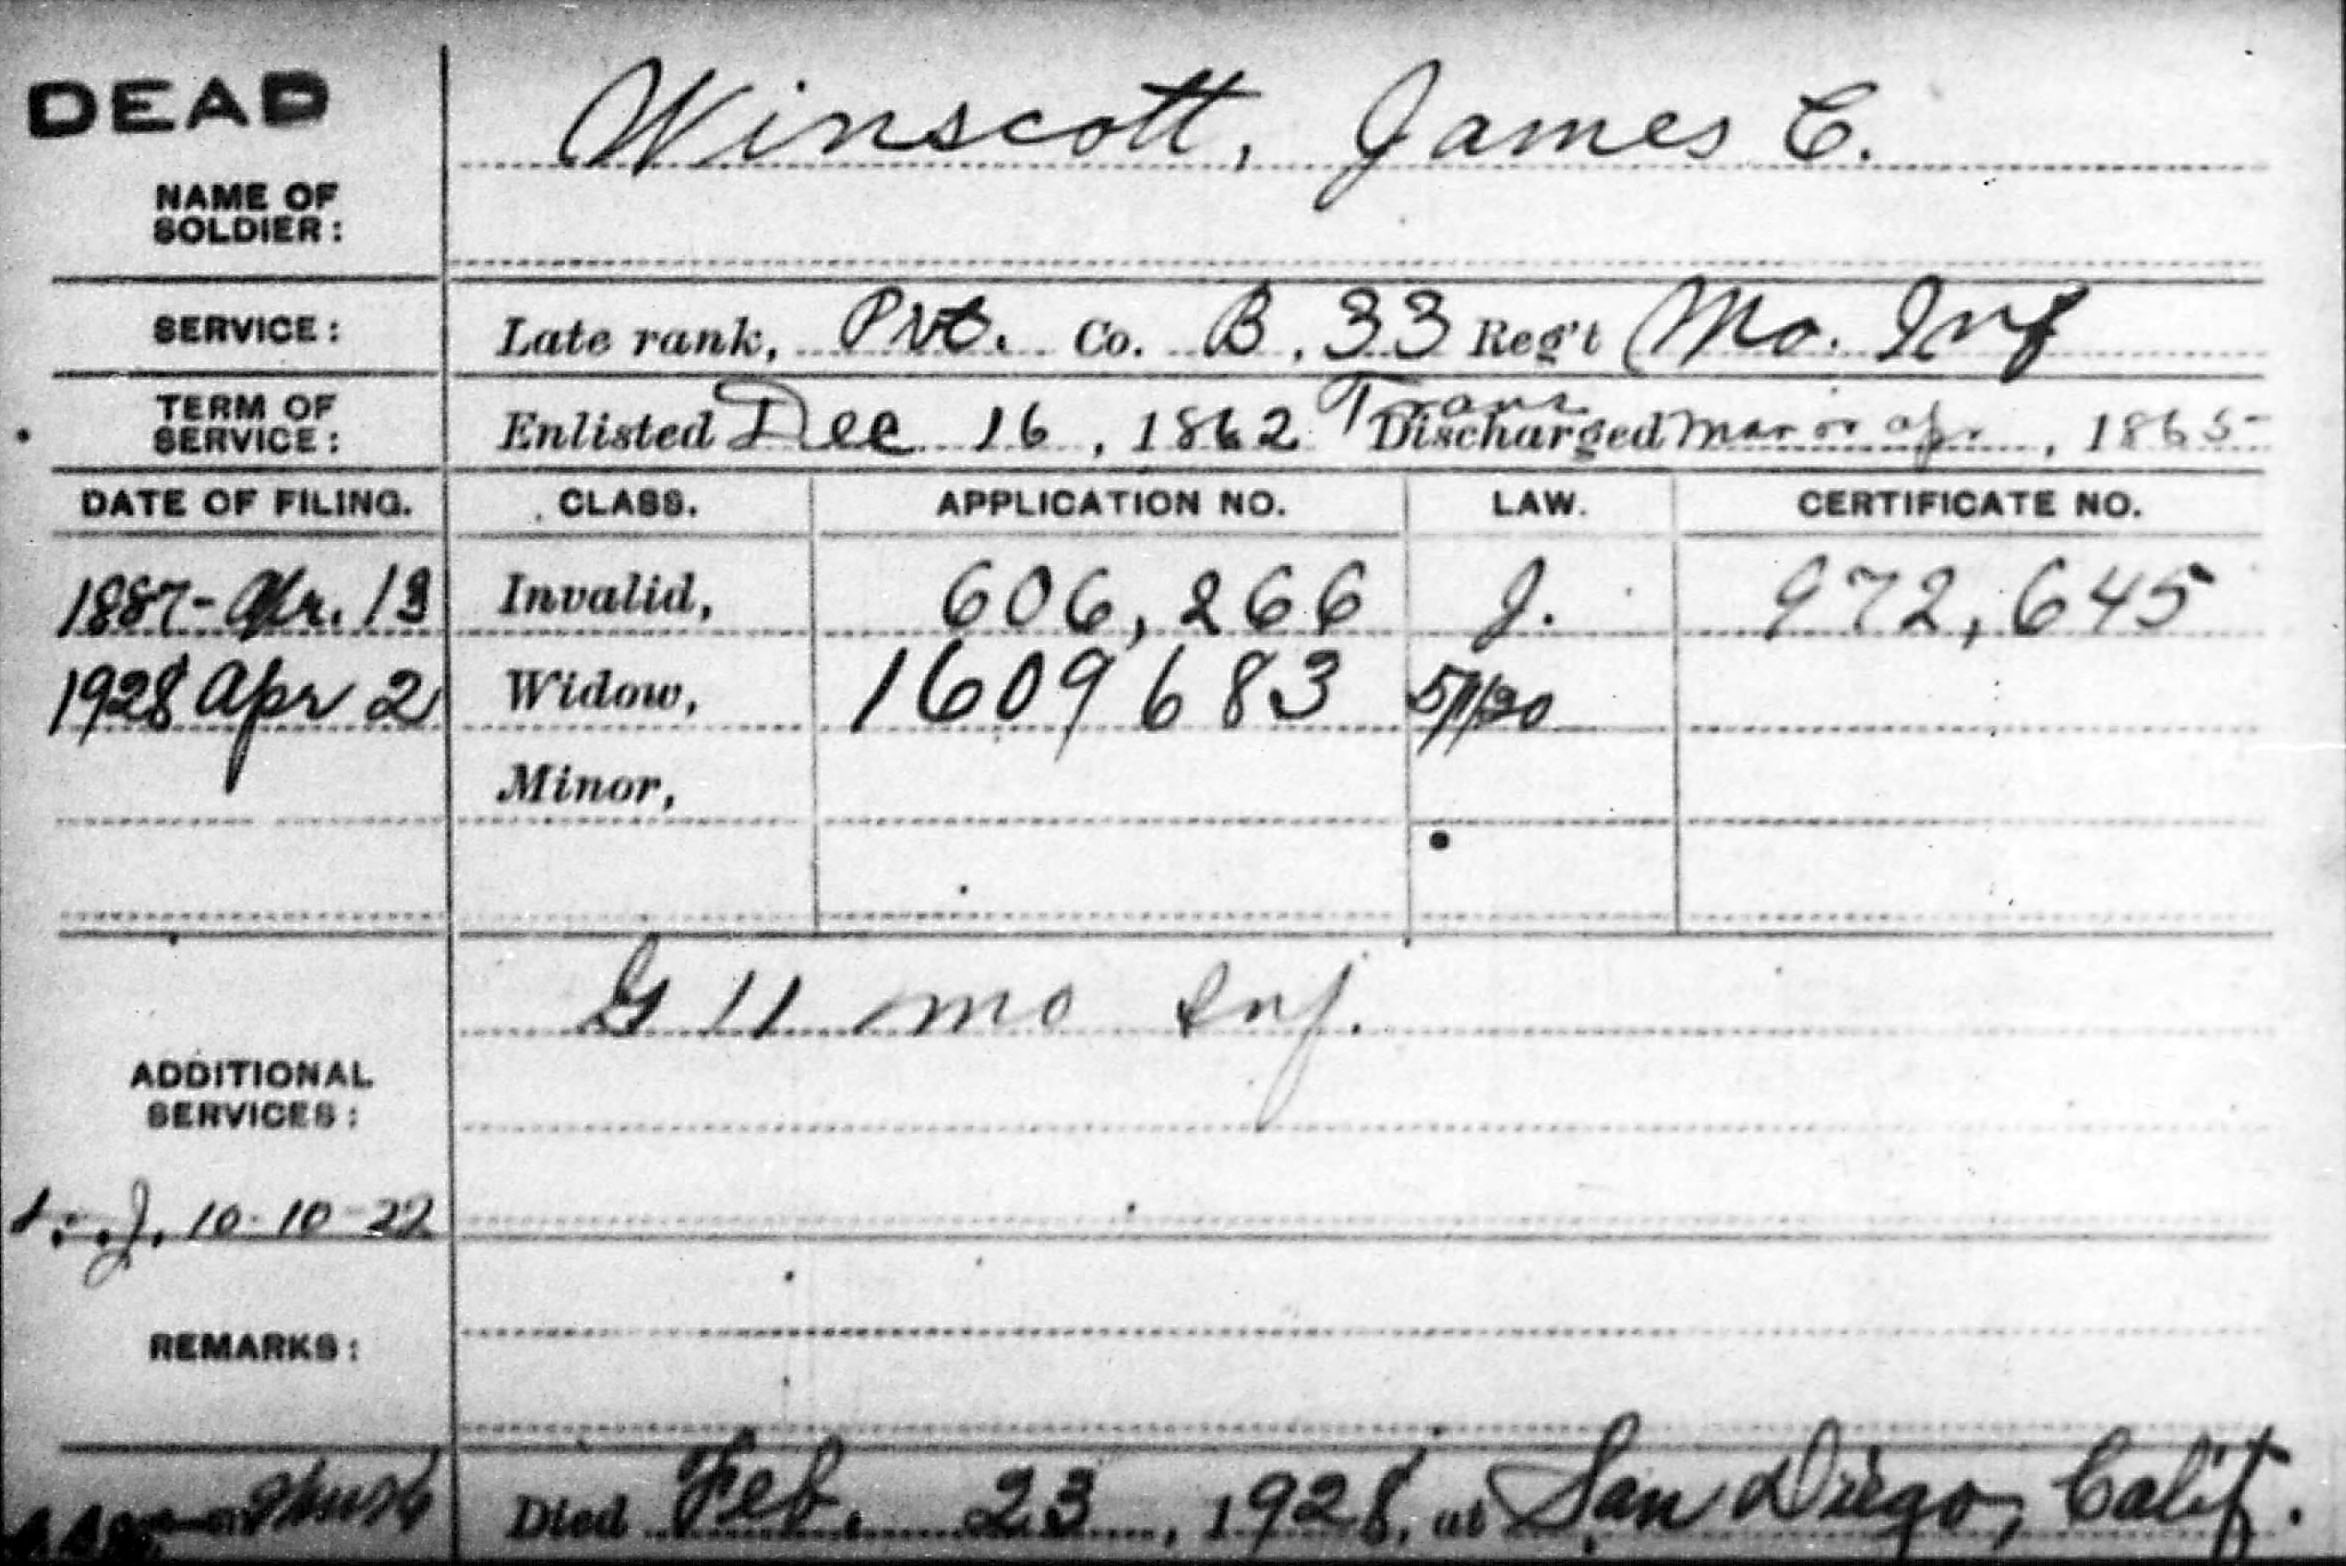 DEAD
Winscott, James C.
NAME OF
SOLDIER:
SERVICE: Late rank, Pvt. Co. B, 33 Reg't Mo. Inf
TERM OF
SERVICE: Enlisted Dec 16, 1862 Trans Discharged Mar or Apr, 1865
DATE OF FILING. CLASS. APPLICATION NO. LAW. CERTIFICATE NO.
1887- Apr. 13 Invalid, 606,266 J. 972,645
1928 Apr 2 Widow, 1609683 5/1/20
Minor,
G 11 Mo Inf.
ADDITIONAL
SERVICES:
J. 10-10-22
REMARKS:
Died Feb. 23, 1928, at San Diego, Calif.